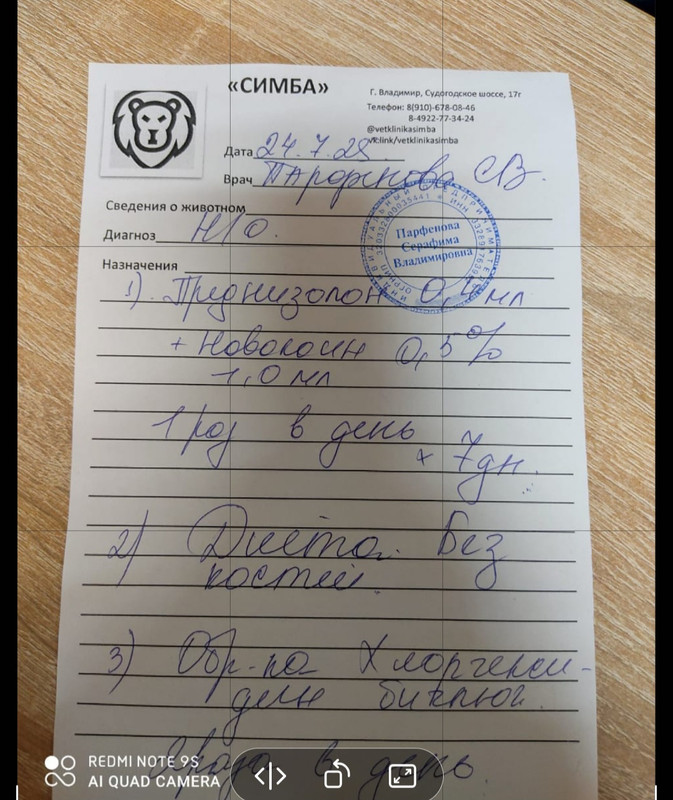 «СИМБА»
Г. Владимир, Судогодское шоссе, 17г
Телефон: 8(910)-678-08-46
8-4922-77-34-24
@vetklinikasimba
vk.link/vetklinikasimba
Дата 24.7.25
Врач Парфенова С.В.
Сведения о животном
Диагноз Н/О.
Парфенова
Серафима
Владимировна
Назначения
1). Преднизолон 0,4 мл
+ Новокоин 0,5%
-1,0 мл
1 раз в день
х 7дн.
2) Диета. Без
костей.
3) Обр-ка Хлоргекси-
дин биглюк.
2 раза в день.
REDMI NOTE 9S
AI QUAD CAMERA